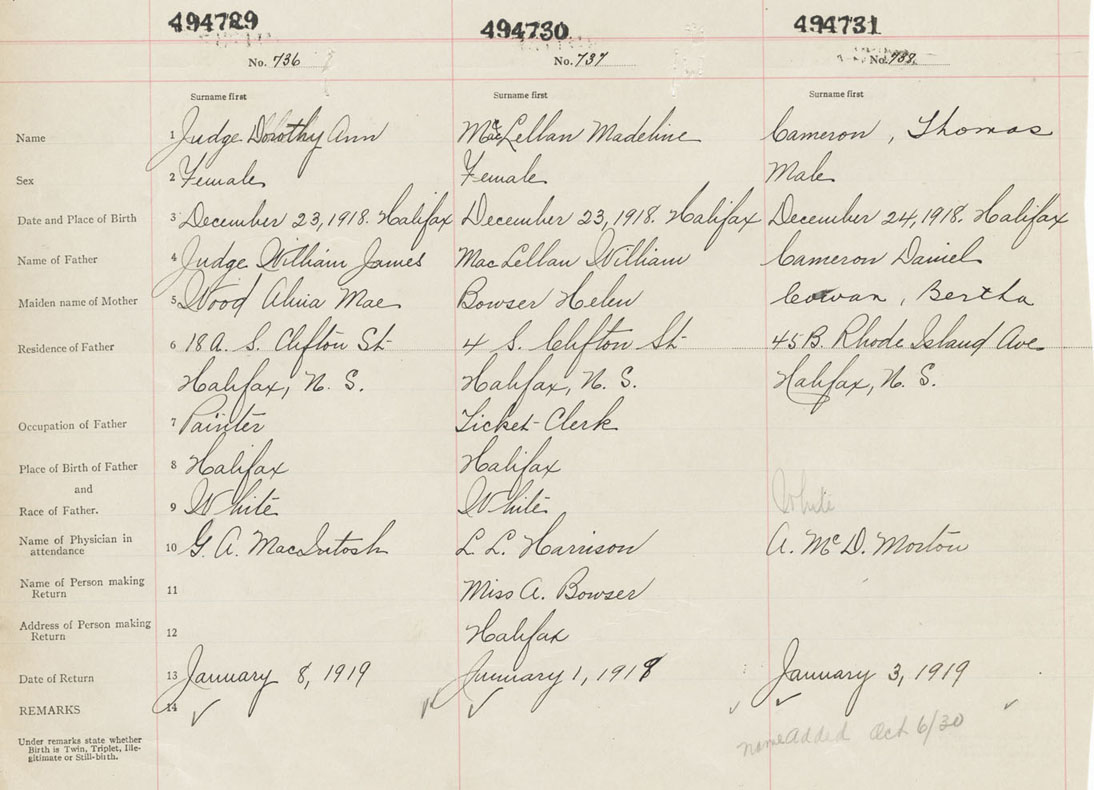 494729 494730 494731
No. 736 No. 737 No. 738.
Surname first Surname first Surname first
Name 1 Judge Dorothy Ann MacLellan Madeline Cameron, Thomas
Sex 2 Female Female Male
Date and Place of Birth 3 December 23, 1918. Halifax December 23, 1918. Halifax December 24, 1918. Halifax
Name of Father 4 Judge William James MacLellan William Cameron Daniel
Maiden name of Mother 5 Wood Mae Bowser Helen Cowan, Bertha
Residence of Father 6 18 A. S. Clifton St 4 S. Clifton St 45 B. Rhode Island Ave
Halifax, N. S. Halifax, N. S. Halifax, N. S.
Occupation of Father 7 Painter Ticket-Clerk
Place of Birth of Father 8 Halifax Halifax
and
Race of Father. 9 White White White
Name of Physician in
attendance 10 G. A. MacIntosh L. L. Harrison A. McD. Morton
Name of Person making
Return 11 Miss A. Bowser
Address of Person making
Return 12 Halifax
Date of Return 13 January 8, 1919 January 1, 1919 January 3, 1919
REMARKS 14
Under remarks state whether
Birth is Twin, Triplet, Ille-
gitimate or Still-birth.
name added Oct 6/30